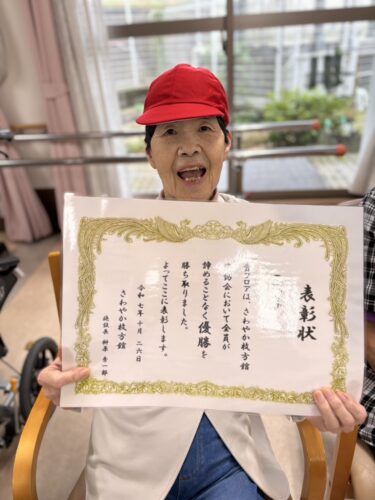 表彰状
貴フロアは、さわやか枚方館
動会において全員が
諦めることなく優勝を
勝ち取りました。
よってここに表彰します。
令和七年十月二六日
さわやか枚方館
施設長 秀一郎